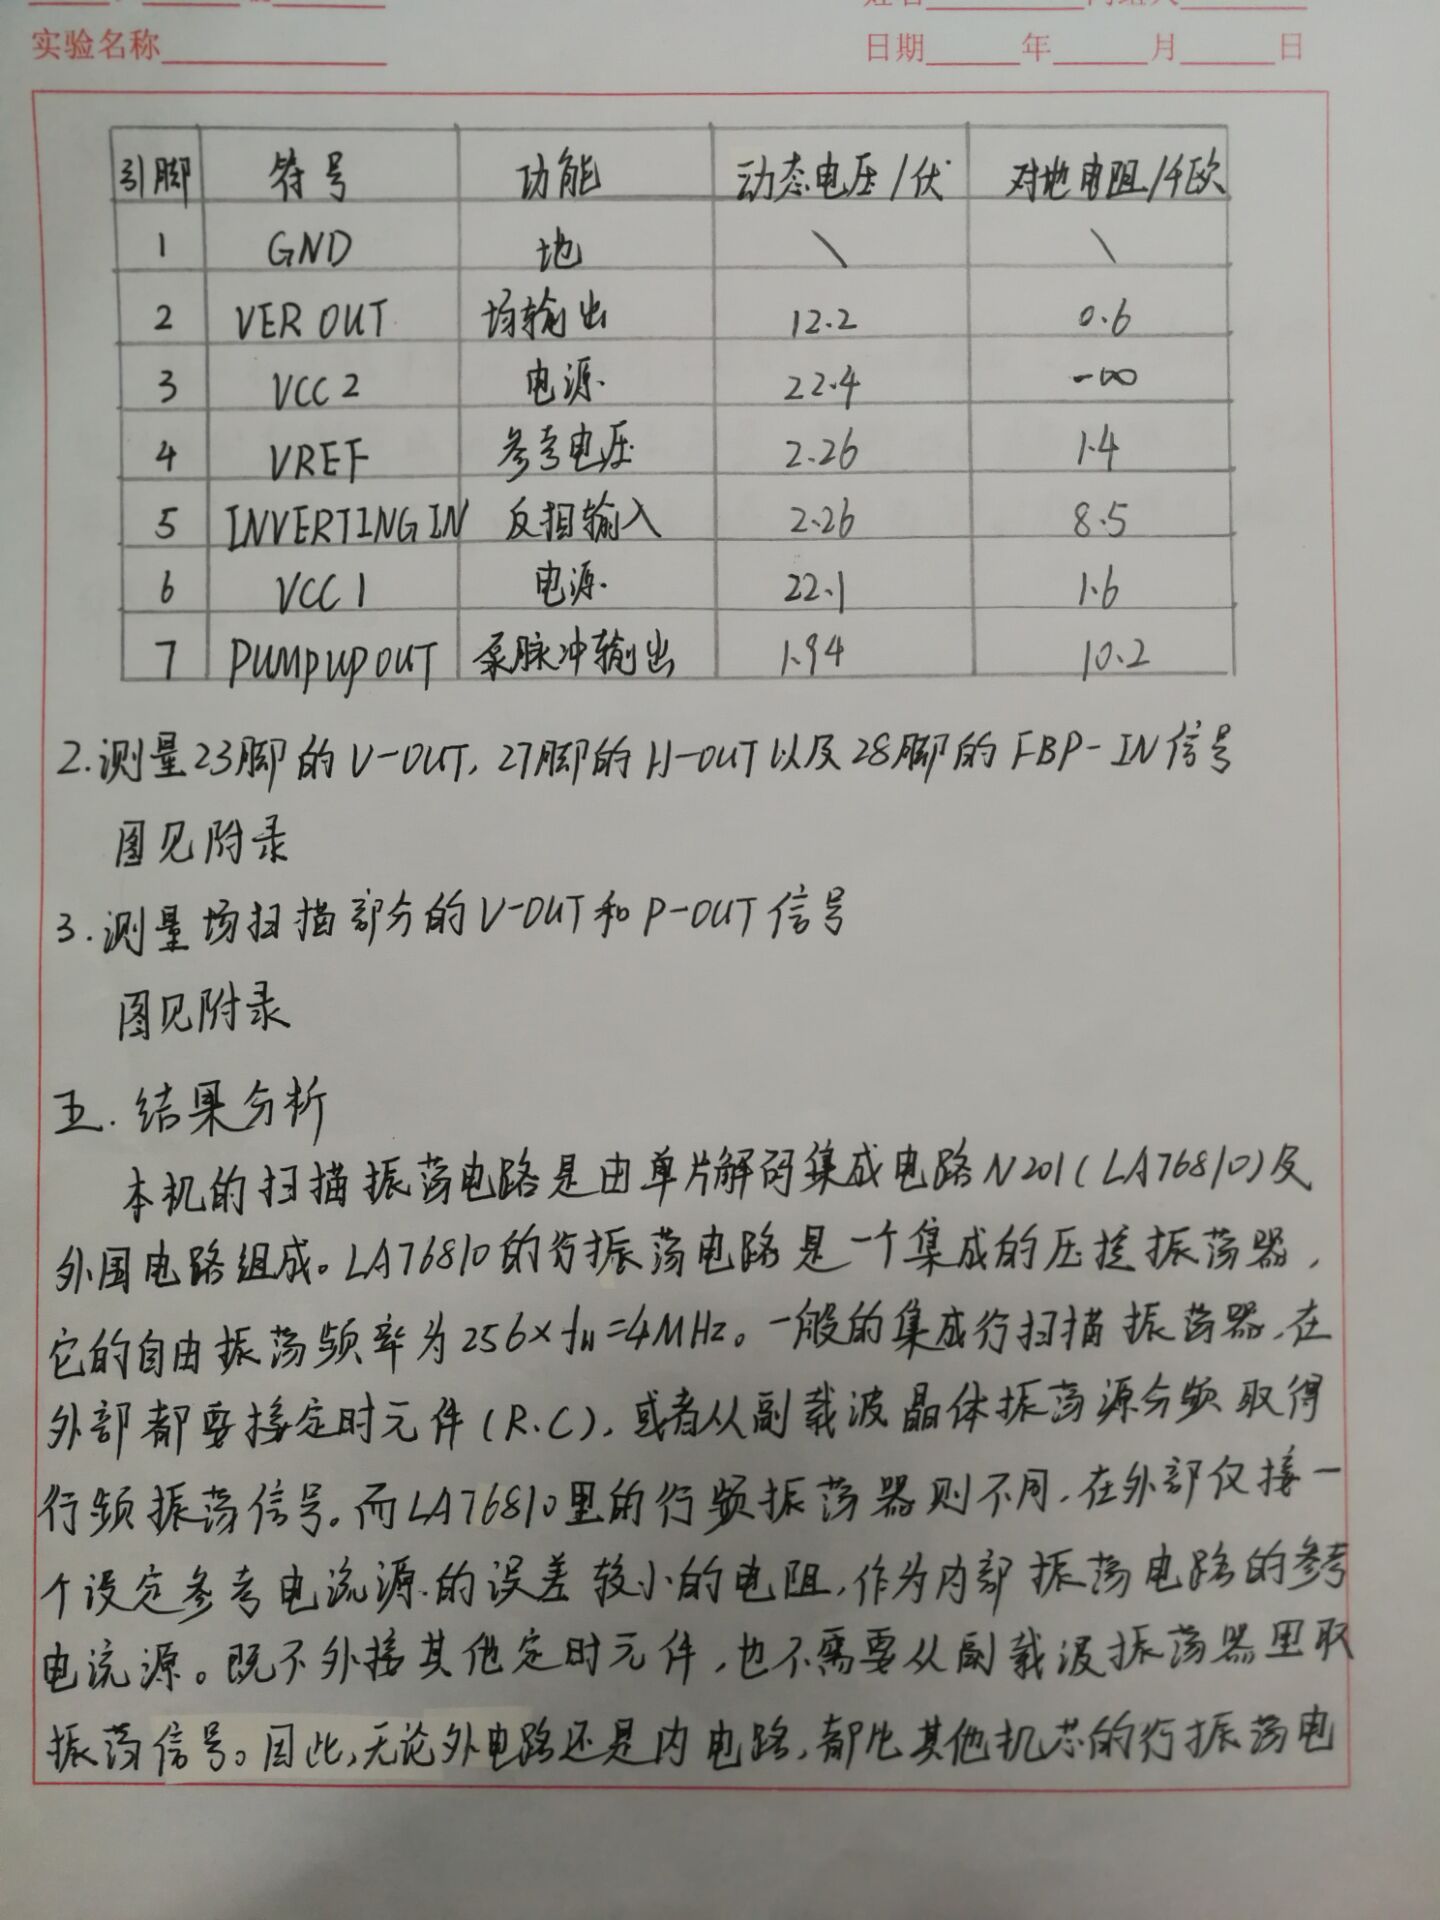 实验名称
日期 年 月 日
引脚 符号 功能 动态电压/伏 对地电阻/千欧
1 GND 地 \ \
2 VER OUT 场输出 12.2 0.6
3 VCC2 电源 22.4 -∞
4 VREF 参考电压 2.26 1.4
5 INVERTING IN 反相输入 2.26 8.5
6 VCC1 电源 22.1 1.6
7 PUMP UP OUT 泵脉冲输出 1.94 10.2
2.测量23脚的V-OUT,27脚的H-OUT以及28脚的FBP-IN信号
图见附录
3.测量场扫描部分的V-OUT和P-OUT信号
图见附录
五.结果分析
本机的扫描振荡电路是由单片解码集成电路N201(LA76810)及
外围电路组成。LA76810的行振荡电路是一个集成的压控振荡器,
它的自由振荡频率为256×fH=4MHz。一般的集成行扫描振荡器,在
外部都要接定时元件(R.C),或者从副载波晶体振荡源分频取得
行频振荡信号。而LA76810里的行频振荡器则不同,在外部仅接一
个设定参考电流源的误差较小的电阻,作为内部振荡电路的参考
电流源。既不外接其他定时元件,也不需要从副载波振荡器里取
振荡信号。因此,无论外电路还是内电路,都比其他机芯的行振荡电